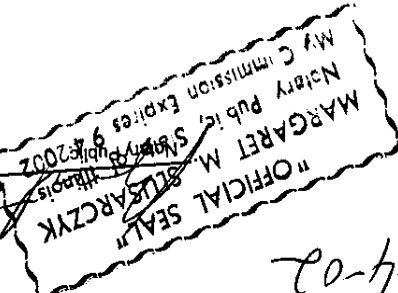 "OFFICIAL SEAL"
MARGARET M. SLUSARCZYK
Notary Public, State of Illinois
My Commission Expires 9 4 2002
Notary Public
4-02